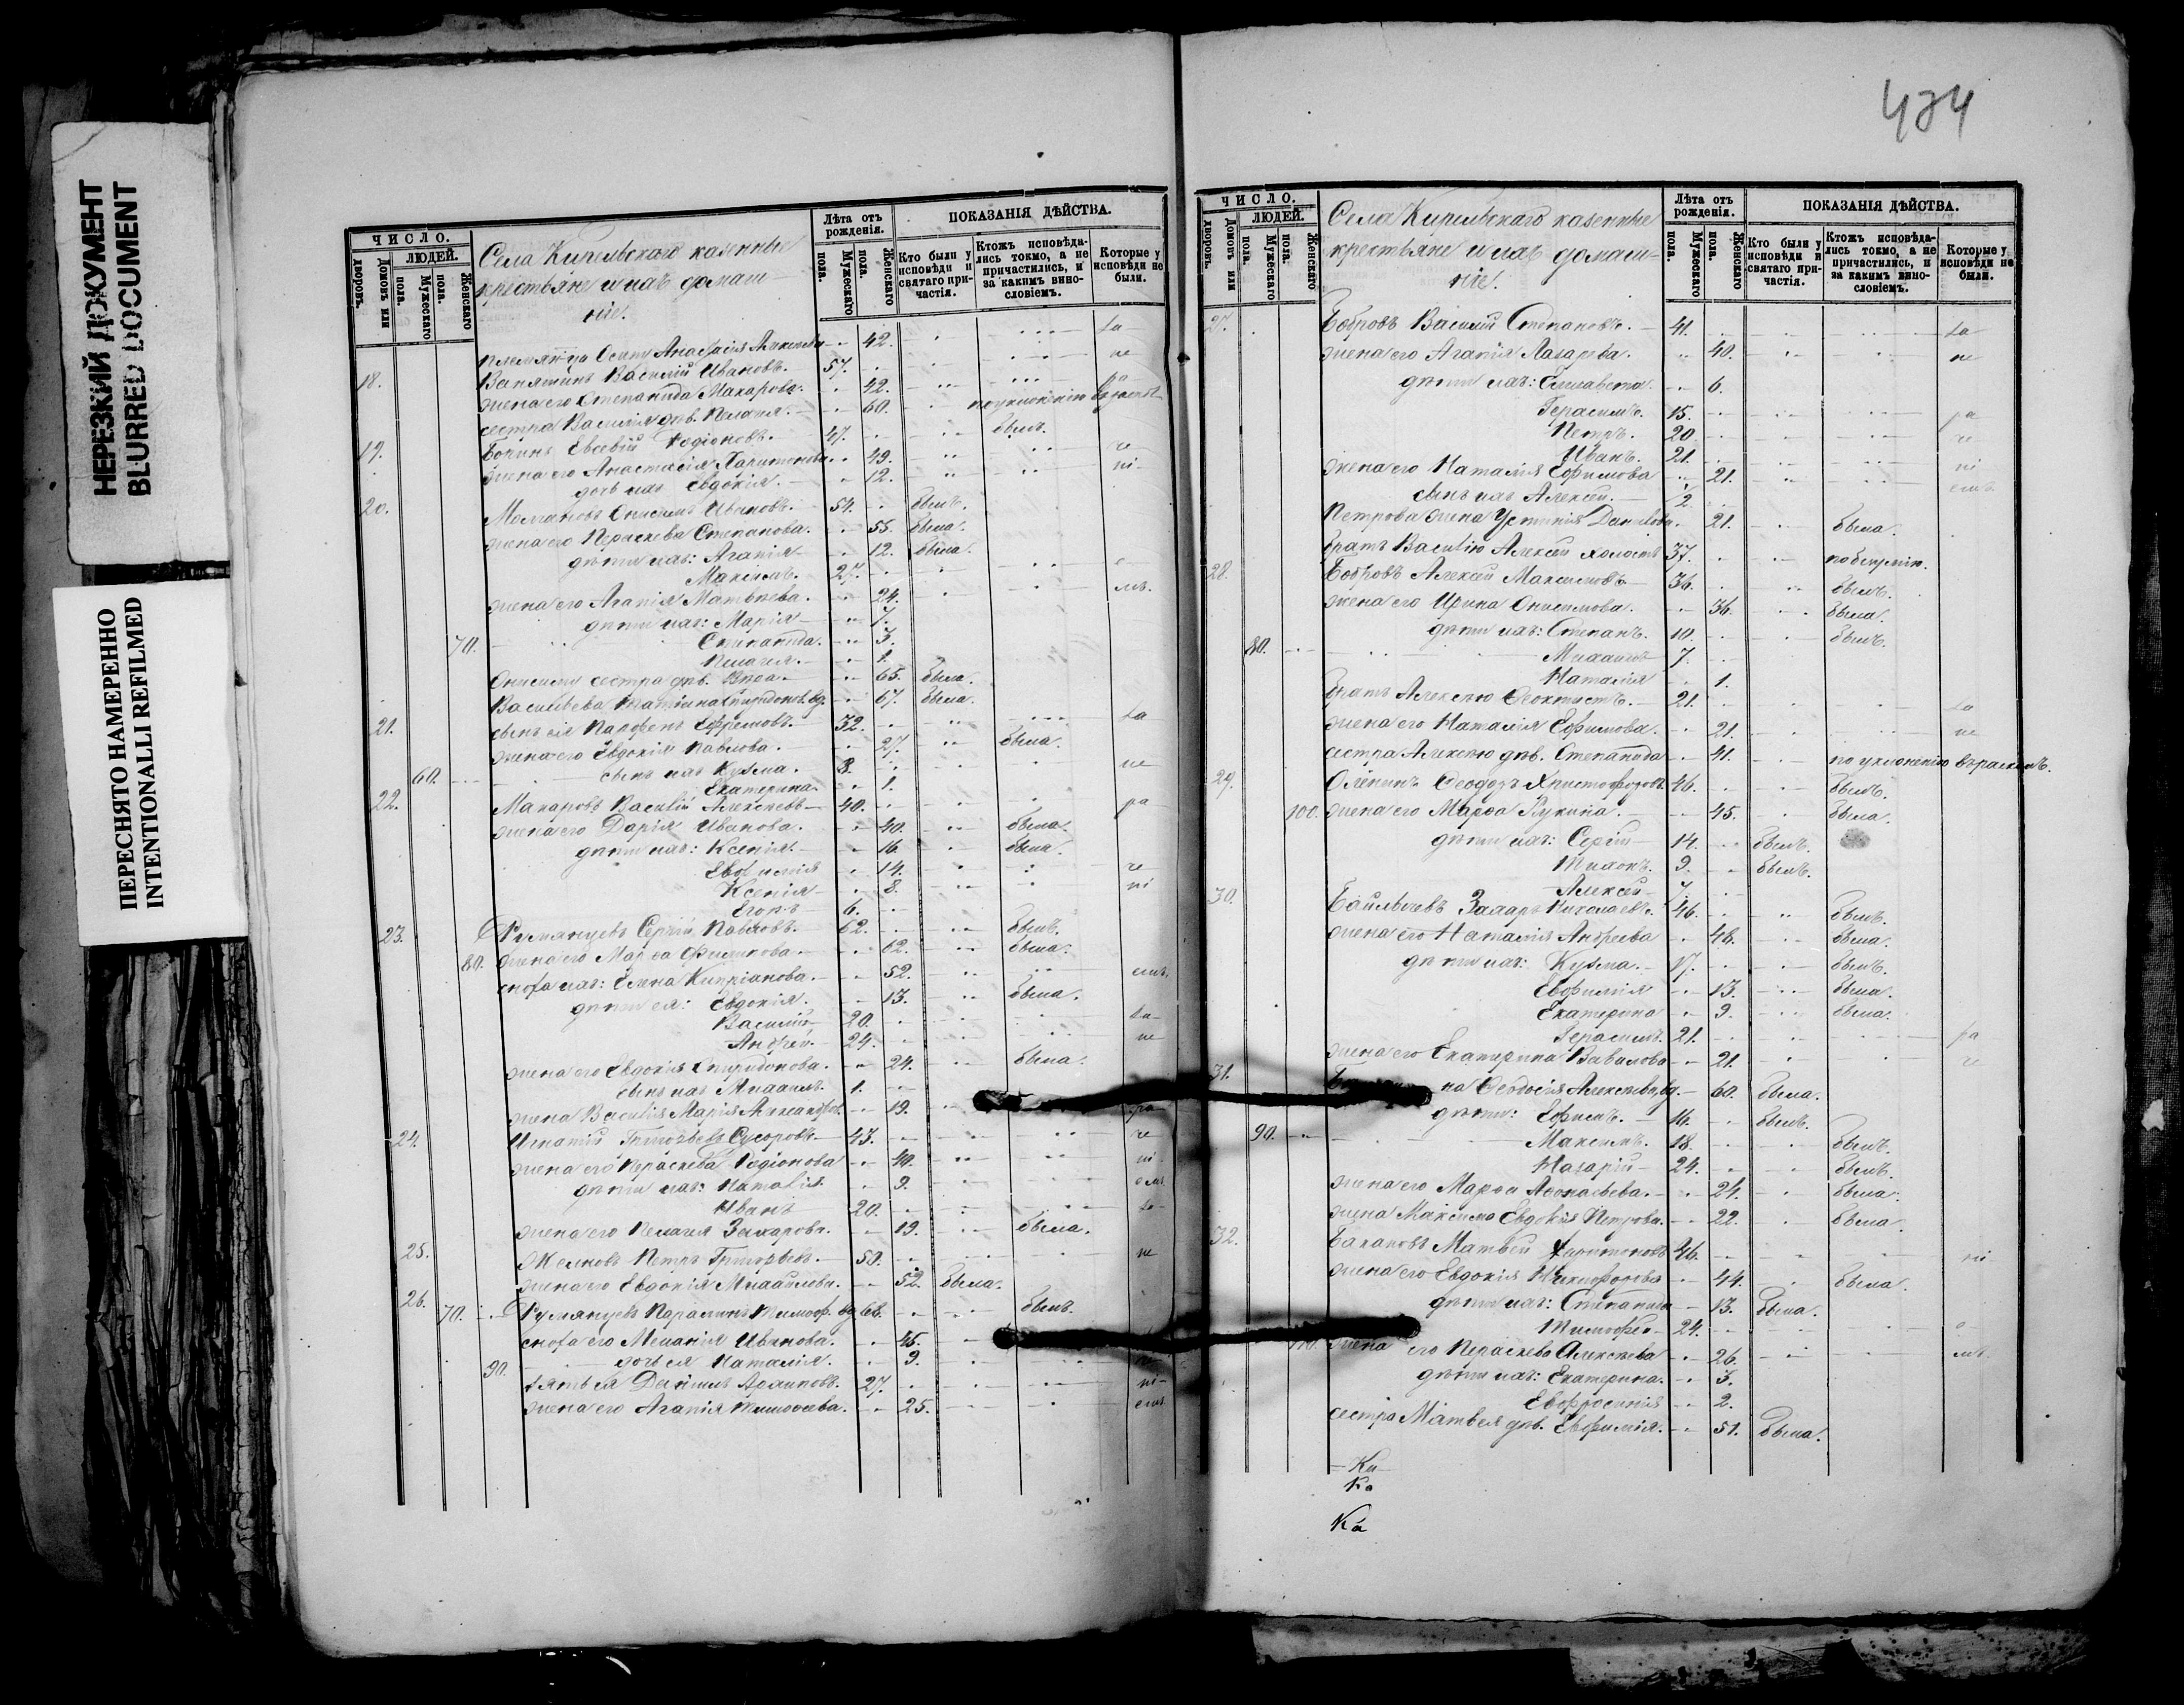 НЕРЕЗКИЙ ДОКУМЕНТ
BLURRED DOCUMENT
ПЕРЕСНЯТО НАМЕРЕННО
INTENTIONALLI REFILMED
ЧИСЛО.
ЛЮДЕЙ.
Домовъ или дворовъ.
Мужескаго пола.
Женскаго пола.
Села казенные
крестьяне и ихъ домаш
ніе.
Лѣта отъ рожденія.
Мужескаго пола.
Женскаго пола.
ПОКАЗАНІЯ ДѢЙСТВА.
Кто были у исповѣди и святаго причастія.
Ктожъ исповѣдались токмо, а не причастились, и за какимъ винословіемъ.
Которые у исповѣди не были.
Анастасія 42. за
18. Василій Ивановъ. 57. не
жена его Степанида Макарова. 42. ра
сестра Василія дѣв. Пелагія. 60. по уклоненію
19. Евсевій Родіоновъ. 47. былъ.
жена его Анастасія Харитонова 49. че
дочь ихъ Евдокія. 12. ні
20. Онисимъ Ивановъ. 54. былъ.
жена его Параскева Степанова. 55. была.
дѣти ихъ: Агапія 12. была.
Максимъ. 27. е
жена его Агапія Матвѣева. 24. мъ.
дѣти ихъ: Марія 7.
70. Степанида. 3.
Пелагія. 1.
Онисиму сестра дѣв. 65. была.
Васильева вд. 67. была.
21. сынъ ея Парфенъ Ефремовъ 32. за
жена его Евдокія Павлова. 27. была.
60. сынъ ихъ Кузма. 3. не
Екатерина 1.
22. Макаровъ Василій Алексѣевъ 40. ра
жена его Дарія Иванова. 40. была.
дѣти ихъ: Ксенія. 16 была.
Евфимія 14. че
Ксенія 8. ні
Егоръ 6.
23. Румянцевъ Сергій Павловъ. 62. былъ.
80. жена его Марфа 62. была.
сноха ихъ: Елена Кипріанова. 52. емъ.
дѣти ея: Евдокія. 13. была.
Василій 20. за
Андрей. 24. не
жена его Евдокія Спиридонова. 24. была.
сынъ ихъ Михаилъ. 1.
жена Василія Марія Александр. 19. ра
24. Игнатій Григорьевъ Сусоровъ 43. че
жена его Параскева Родіонова 40. ні
дѣти ихъ: Наталія 9. емъ.
Иванъ 20. за
жена его Пелагея Захарова. 19. была.
25. Петръ Григорьевъ. 50. не
жена его Евдокія Михайлова. 52. была.
26. 70. Румянцевъ Тимоф. вд. 66. былъ.
сноха его Меланія Иванова. 45.
дочь ея Наталія. 9. че
90. зять ея Даніилъ Архиповъ. 27. ні
жена его Агапія Тимофеева. 25. емъ.
474
ЧИСЛО.
ЛЮДЕЙ.
Домовъ или дворовъ.
Мужескаго пола.
Женскаго пола.
Села казенные
крестьяне и ихъ домаш-
ніе.
Лѣта отъ рожденія.
Мужескаго пола.
Женскаго пола.
ПОКАЗАНІЯ ДѢЙСТВА.
Кто были у исповѣди и святаго причастія.
Ктожъ исповѣдались токмо, а не причастились, и за какимъ винословіемъ.
Которые у исповѣди не были.
27. Бобровъ Василій Степановъ. 41. за
жена его Агапія Лазарева. 40. не
дѣти ихъ: Елисавета. 6.
Герасимъ. 15. ра
Петръ. 20. че
Иванъ. 21. ні
жена его Наталія Ефимова 21. емъ.
сынъ ихъ Алексѣй. 2.
Петрова жена Устинія Данилова. 21. была.
братъ Василію Алексѣй холостъ 37. по безумію.
28. Бобровъ Алексѣй Максимовъ 36. былъ.
жена его Ирина Онисимова. 36. была.
дѣти ихъ: Степанъ. 10. былъ.
80. Михаилъ 7.
Наталія 1.
братъ Алексѣю Феоктистъ. 21. за
жена его Наталія Ефимова. 21. не
сестра Алексѣю дѣв. Степанида 41. по уклоненію въ расколъ.
29. Оленинъ Феодоръ Христофоровъ 46. былъ.
100. жена его Марфа 45. была.
дѣти ихъ: Сергій 14. былъ.
Тихонъ. 9. былъ.
Алексѣй 7.
30. Захаръ Николаевъ. 46. былъ.
жена его Наталія Андреева 48. была.
дѣти ихъ: Кузма. 17. былъ.
Евфимія 13. была.
Екатерина 9. была.
Герасимъ. 21. ра
жена его Екатерина Вавилова 21. че
31. Феодосія Алексѣева вд. 60. была.
дѣти: Ефимъ. 16. былъ.
90. Максимъ. 18. былъ.
Назарій 24. былъ.
жена его Марфа Афонасьева. 24. была.
жена Максима Евдокія Петрова. 22. была.
32. Бакановъ Матвей Харитоновъ 46. ні
жена его Евдокія Никифорова 44. была.
дѣти ихъ: Степанида 13. была.
Тимофей 24. е
110. жена его Параскева Алексѣева 26. мъ.
дѣти ихъ: Екатерина. 3.
Евфросинія 2.
сестра Матвея дѣв. Евфимія. 51. была.
Ка
Ка
Ка